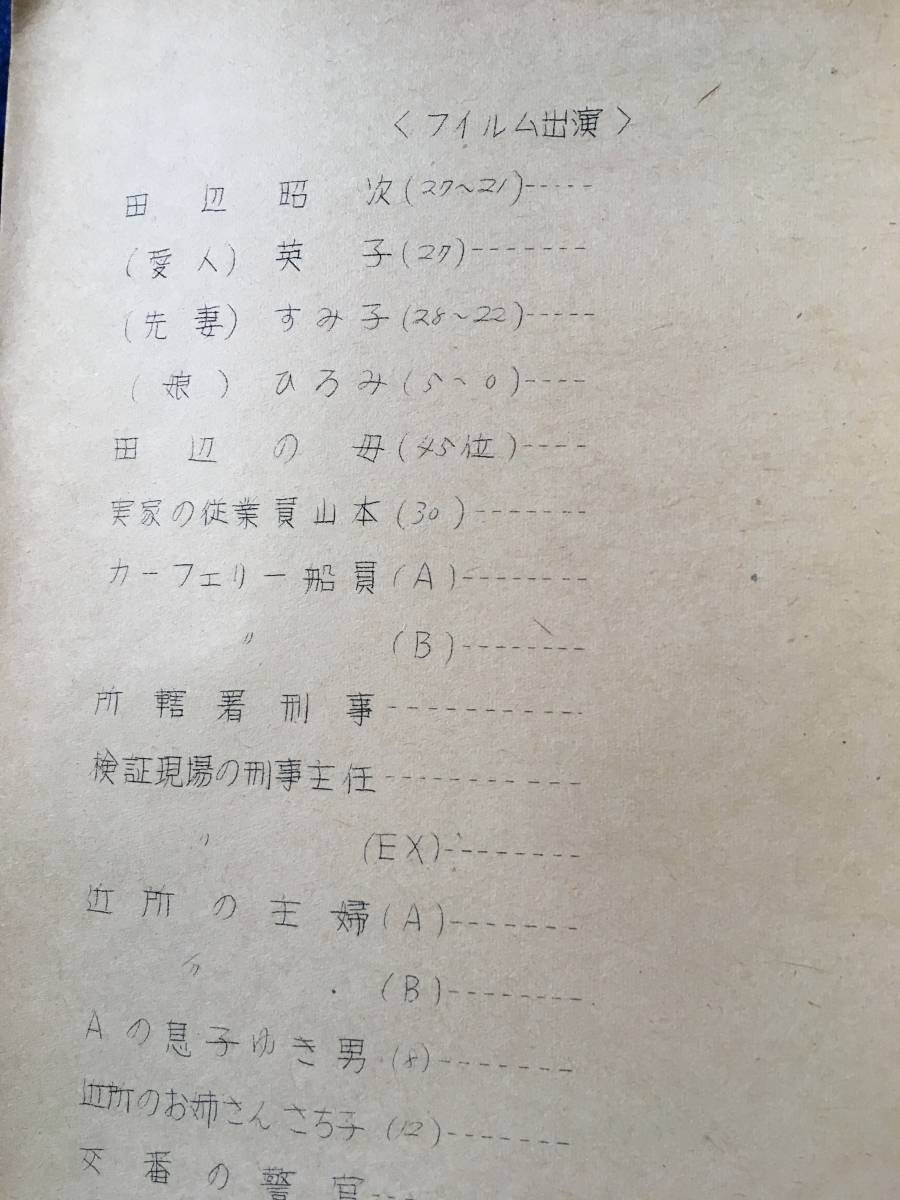 〈フイルム出演〉
田辺昭次(27〜21)-----
(愛人)英子(27)-------
(先妻)すみ子(28〜22)-----
(娘)ひろみ(5〜0)----
田辺の母(45位)----
実家の従業員山本(30)-------
カーフェリー船員(A)--------
〃(B)--------
所轄署刑事-----------
検証現場の刑事主任-----------
〃(EX)--------
近所の主婦(A)--------
〃(B)--------
Aの息子ゆき男(8)--------
近所のお姉さんさち子(12)-------
交番の警官---